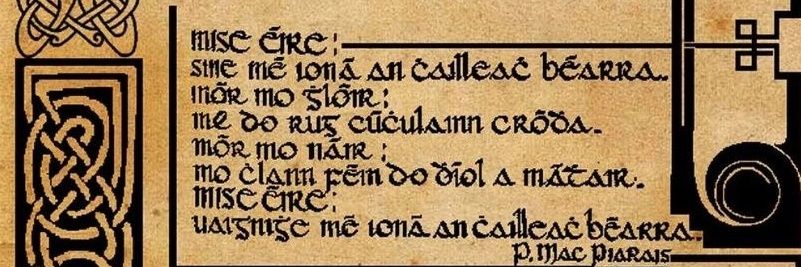 mise éire:
sine mé ioná an ċailleaċ béarra..
mór mo ġlóir:
me do rug cúċulainn cróḋa.
mór mo náir:
mo ċlann féin do ḋíol a máṫair.
mise éire:
uaigniġe mé ioná an ċailleaċ béarra..
P. Mac Piarais